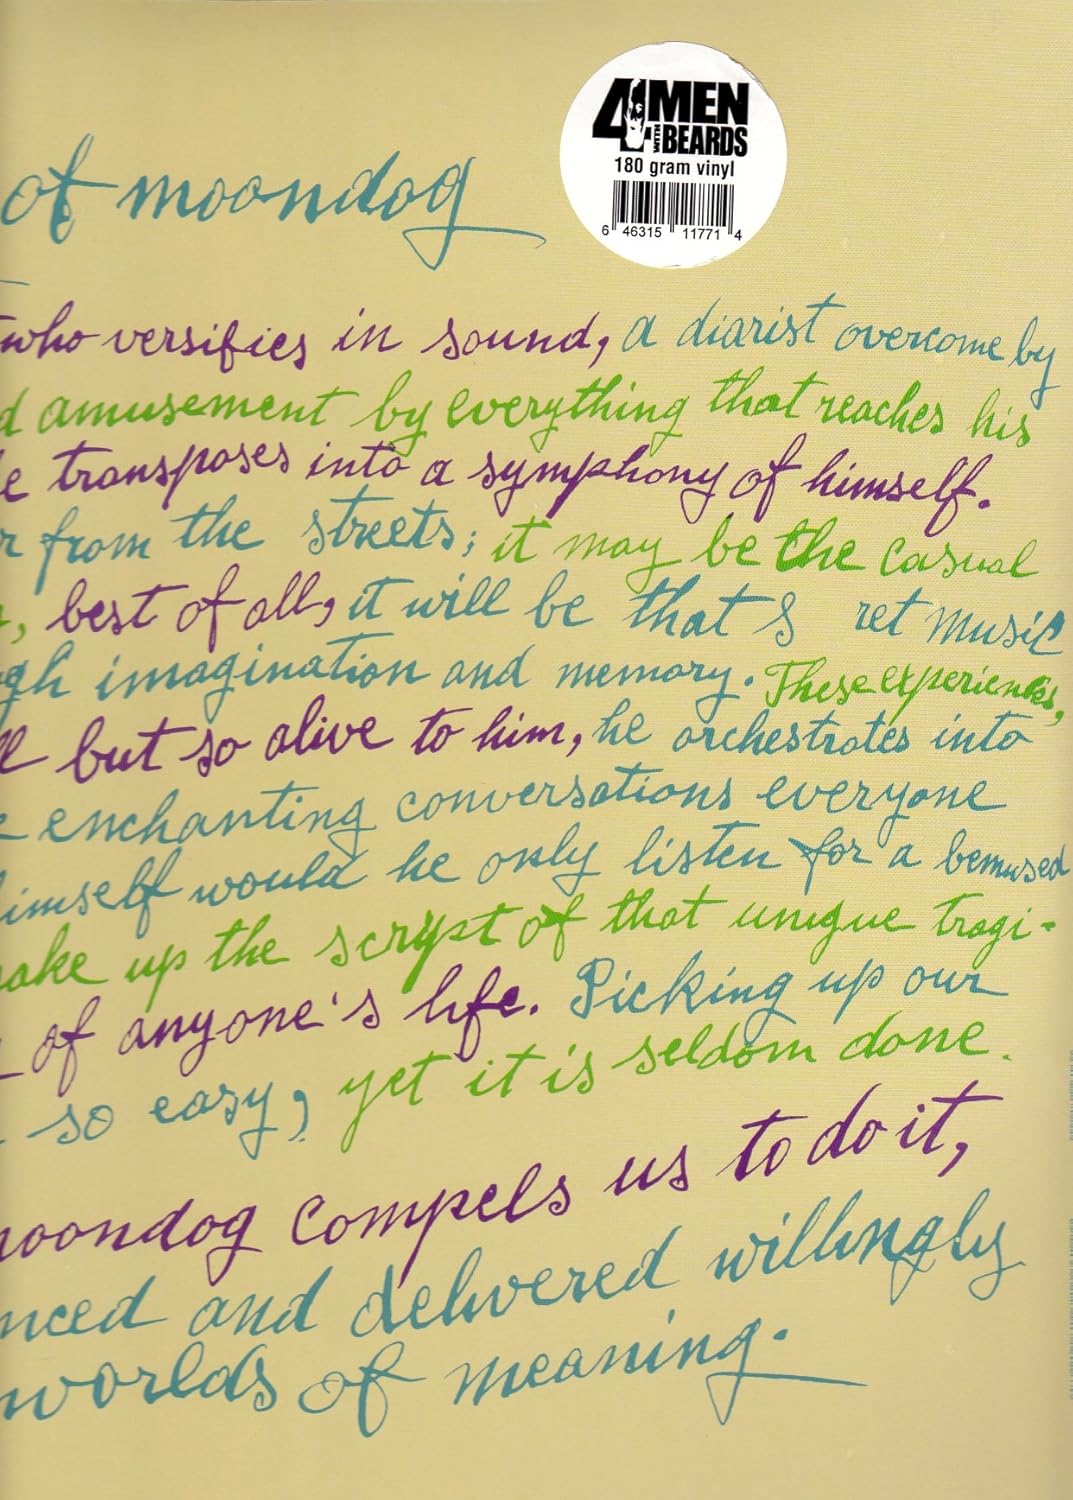 4 MEN
WITH BEARDS
180 gram vinyl
6 46315 11771 4
of moondog
who versifies in sound, a diarist overcome by
d amusement by everything that reaches his
e transposes into a symphony of himself.
r from the streets; it may be the casual
, best of all, it will be that s ret music
gh imagination and memory. These experiences,
ll but so alive to him, he orchestrates into
e enchanting conversations everyone
imself would he only listen for a bemused
ake up the script of that unique tragi-
of anyone's life. Picking up our
so easy, yet it is seldom done.
oondog compels us to do it,
nced and delivered willingly
worlds of meaning.